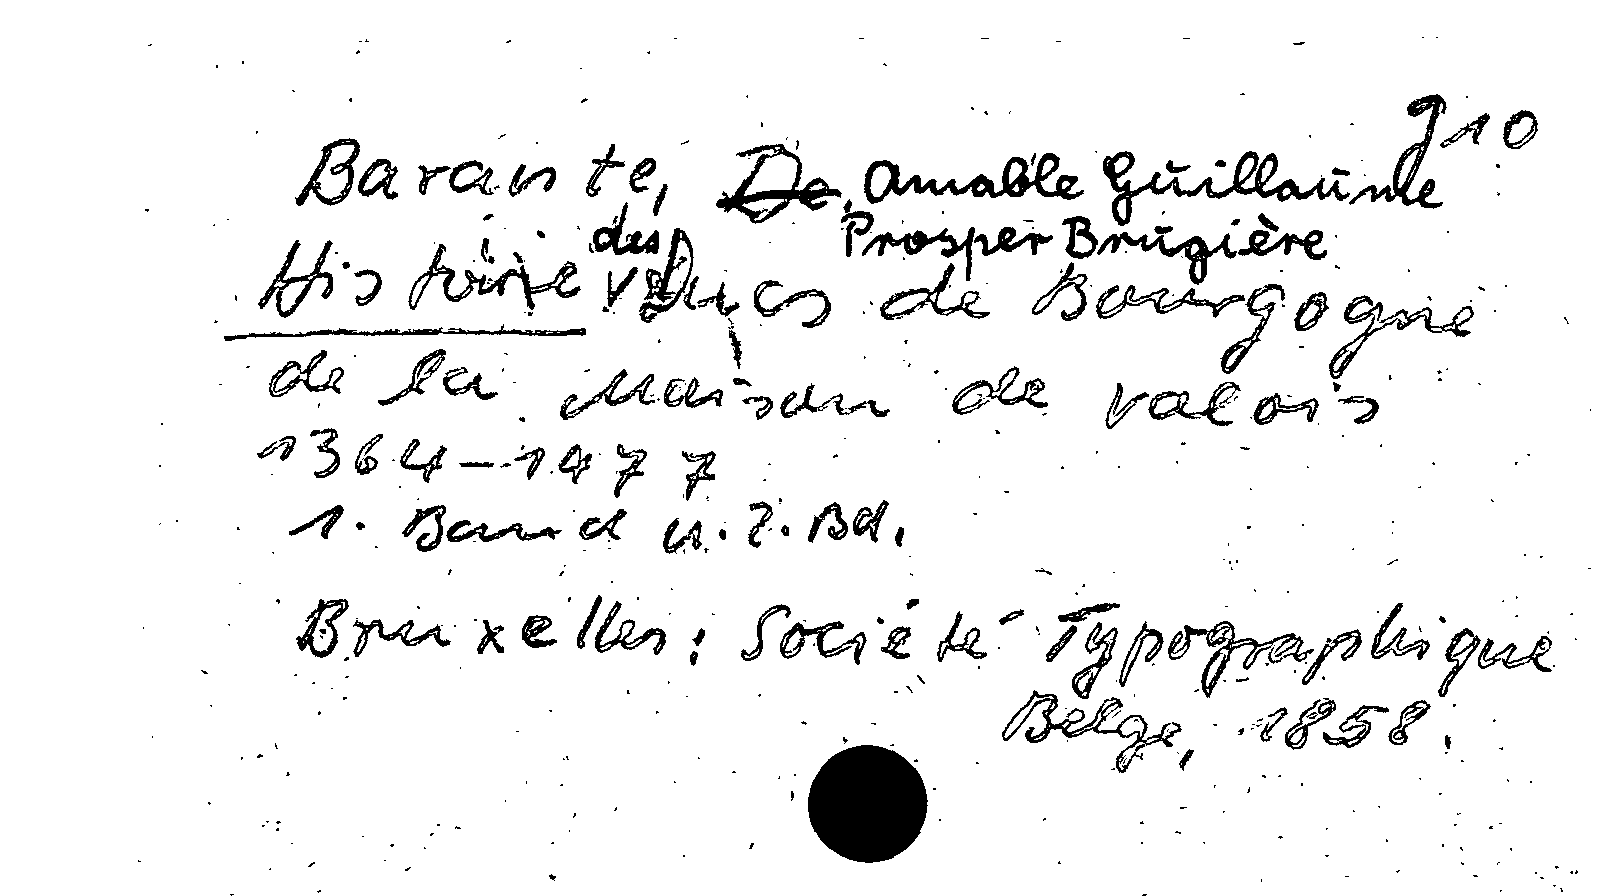 g10
Barante, De, Amable Guillaume
Prosper Brugière
Histoire des Ducs de Bourgogne
de la Maison de Valois
1364-1477
1. Band u. 2. Bd.
Bruxelles: Société Typographique
Belge, 1858.